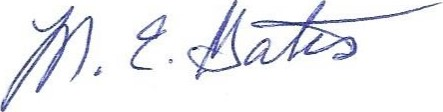 M. E. Bates